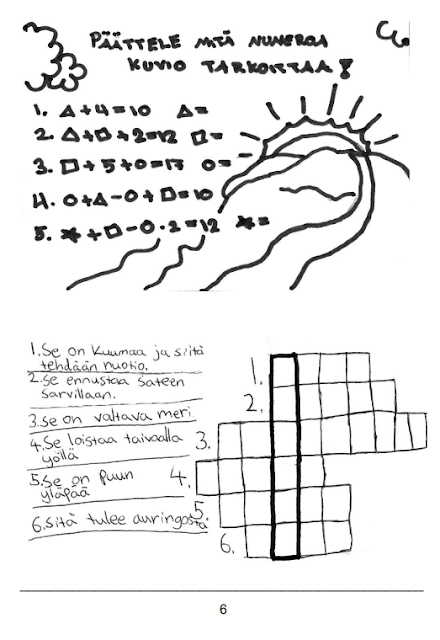 PÄÄTTELE MITÄ NUMEROA
KUVIO TARKOITTAA!
1. △+4=10 △=
2. △+□+2=12 □=
3. □+5+O=17 O=
4. O+△-O+□=10
5. *+□-O·2=12 *=
1. Se on kuumaa ja siitä
tehdään nuotio.
2. Se ennustaa Sateen
Sarvillaan.
3. Se on valtava meri
4. Se loistaa taivaalla
yöllä
5. Se on puun
yläpää
6. Sitä tulee auringosta
1.
2.
3.
4.
5.
6.
6